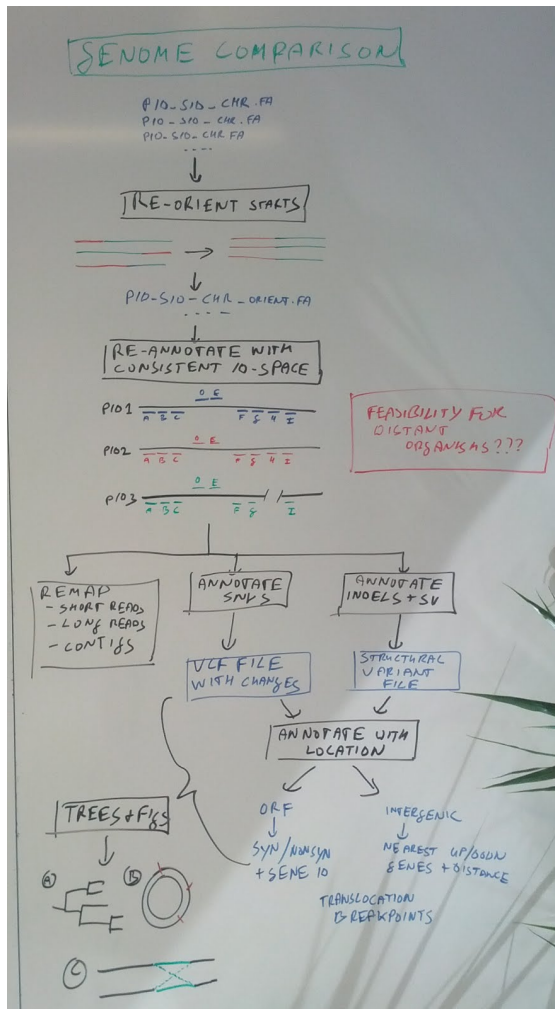 GENOME COMPARISON
PID_SID_CHR.FA
PID_SID_CHR.FA
PID_SID_CHR.FA
RE-ORIENT STARTS
PID_SID_CHR_ORIENT.FA
RE-ANNOTATE WITH
CONSISTENT ID-SPACE
PID1
D E
A B C
F G H I
PID2
D E
A B C
F G H I
PID3
D E
A B C
F G
I
FEASIBILITY FOR
DISTANT
ORGANISMS???
REMAP
- SHORT READS
- LONG READS
- CONTIGS
ANNOTATE
SNVS
ANNOTATE
INDELS + SV
VCF FILE
WITH CHANGES
STRUCTURAL
VARIANT
FILE
ANNOTATE WITH
LOCATION
TREES + FIGS
ORF
INTERGENIC
SYN/NONSYN
+ GENE ID
NEAREST UP/DOWN
GENES + DISTANCE
TRANSLOCATION
BREAKPOINTS
A
B
C